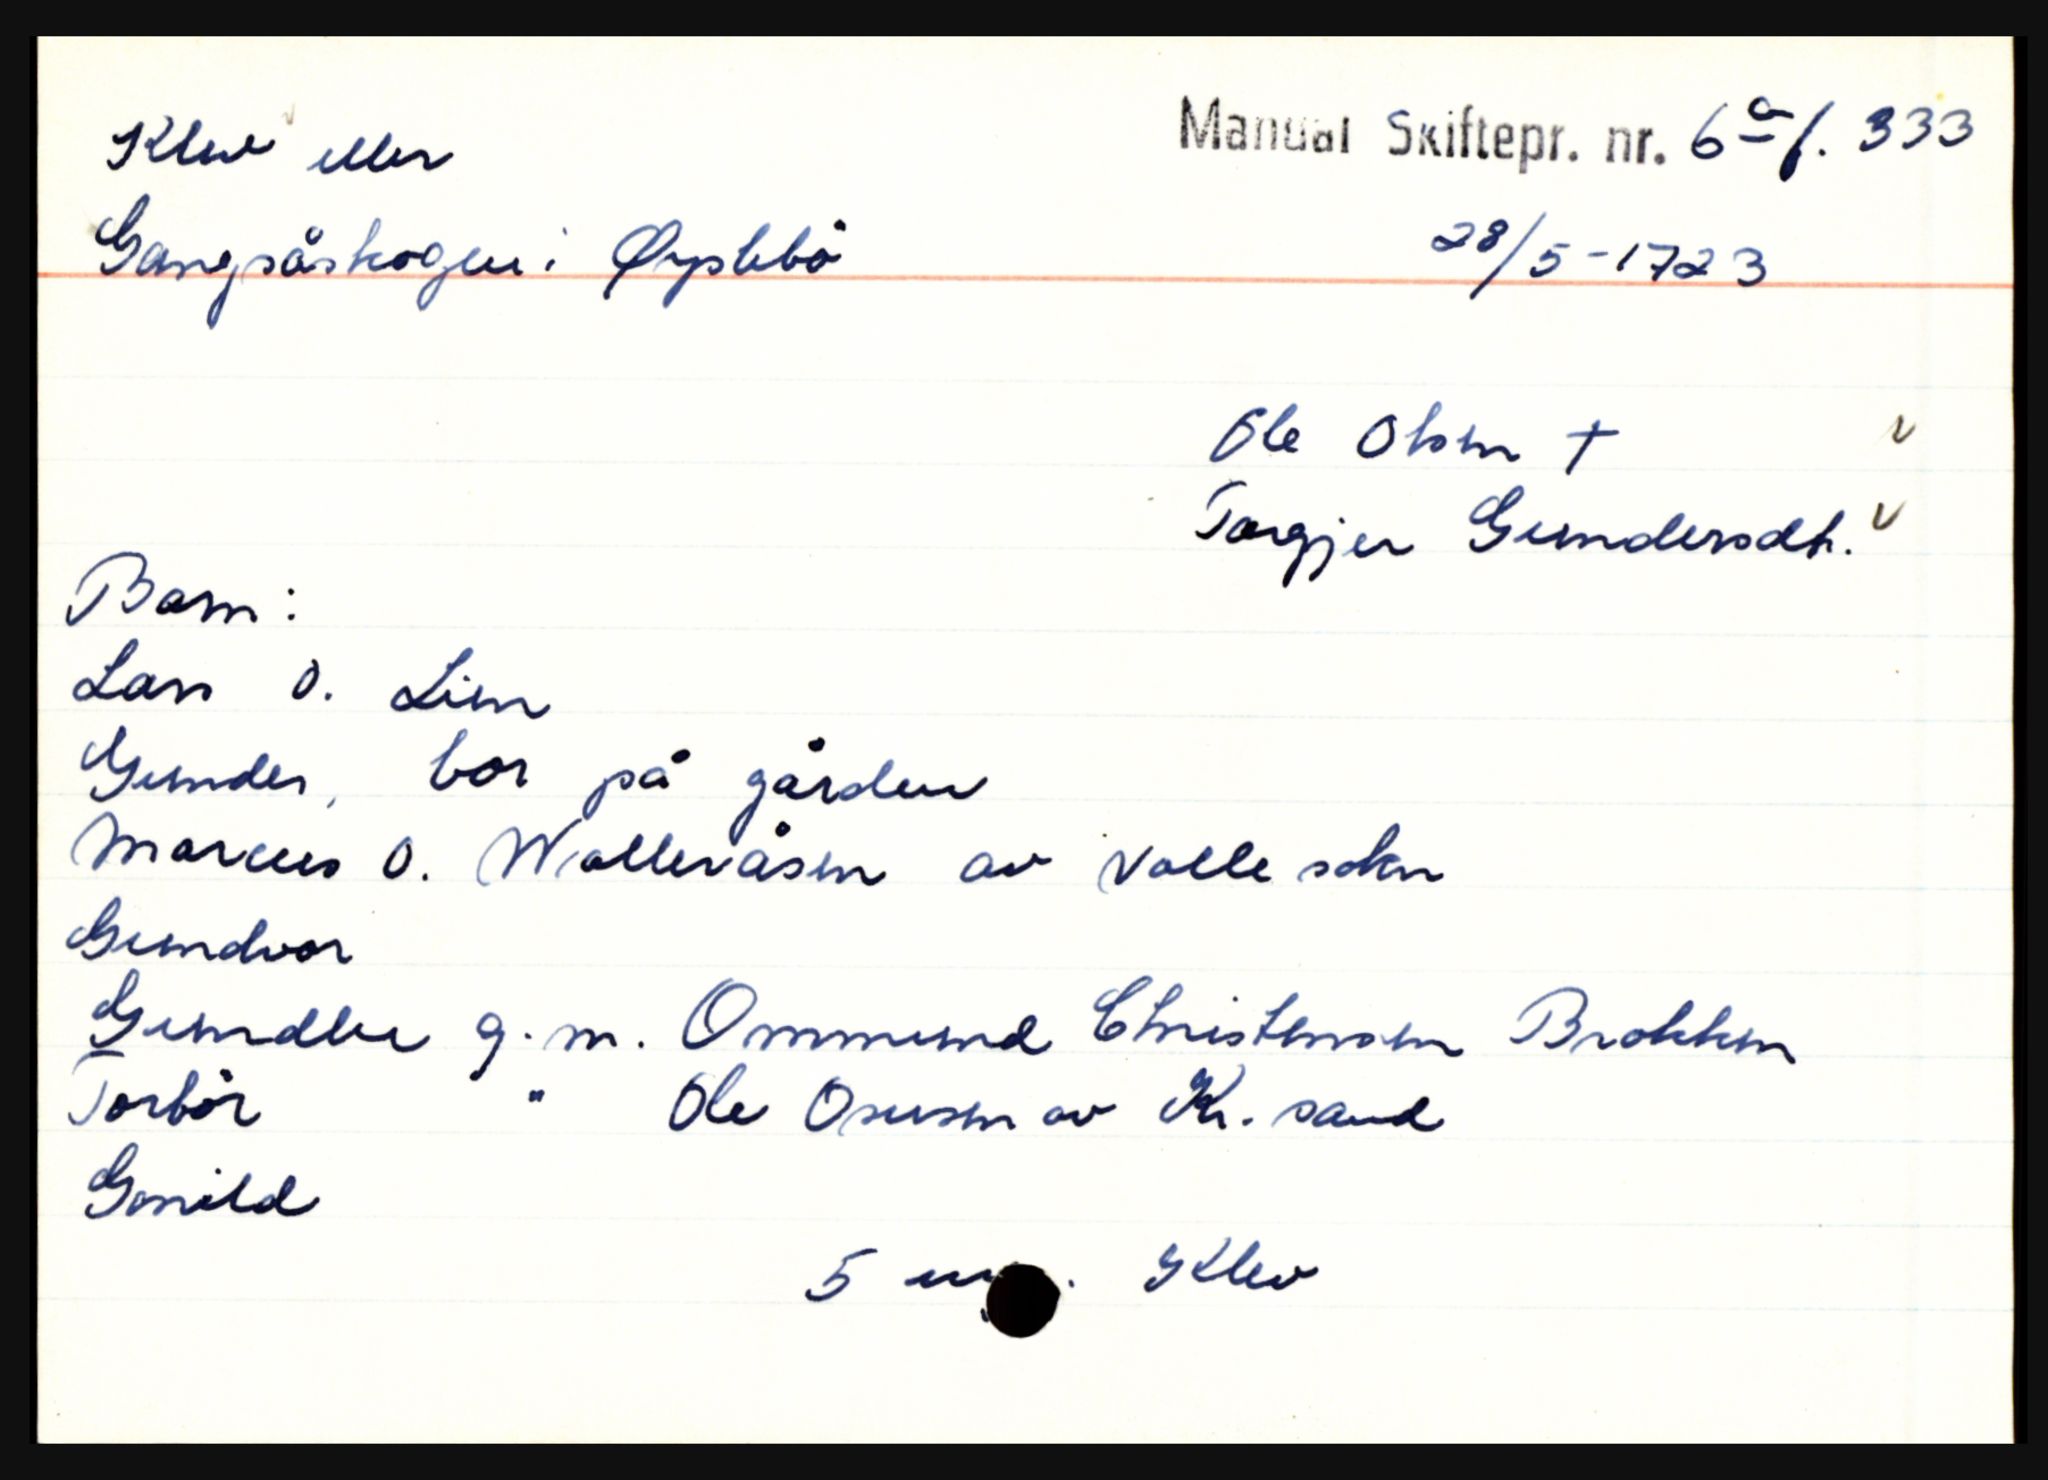 Klev eller
Manual Skiftepr. nr. 6a f. 333
Gangsåskogen i Øyslebö
28/5-1723
Ole Olsen †
Torgjer Gundersdt.
Barn:
Lars O. Lien
Gunder, bor på gården
Marcus O. Wallevåsen av Valle sokn
Gundvor
Gundble g.m. Ommund Christensen Brokken
Torbör " Ole Osusen av Kr.sand
Gonild
5 Klev